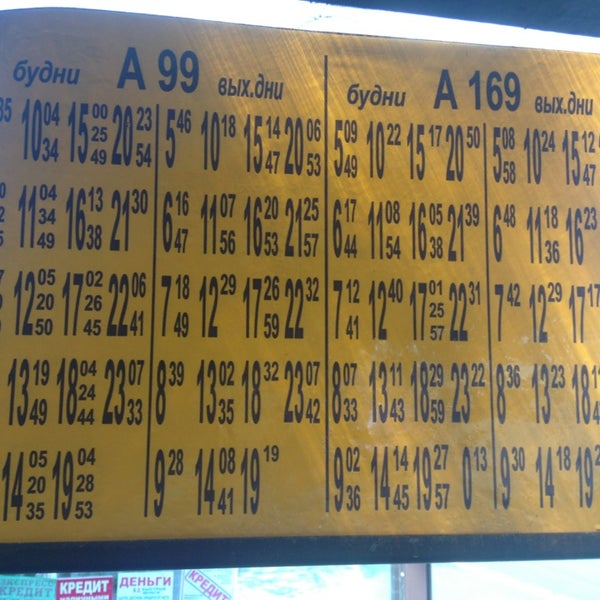 будни А 99 вых.дни будни А 169 вых.дни
35 10 04 34 15 00 25 49 20 23 54 5 46 10 18 15 14 47 20 06 53 5 09 49 10 22 15 17 20 50 5 08 58 10 24 15 12 47
11 04 34 49 16 13 38 21 30 6 16 47 11 07 56 16 20 53 21 25 57 6 17 44 11 08 54 16 05 38 21 39 6 48 11 18 36 16 23
12 05 20 50 17 02 26 45 22 06 41 7 18 49 12 29 17 26 59 22 32 7 12 41 12 40 17 01 25 57 22 31 7 42 12 29 17 17
13 19 49 18 04 24 44 23 07 33 8 39 13 02 35 18 32 23 07 42 8 07 33 13 11 43 18 29 59 23 22 8 36 13 23 18 11
14 05 20 35 19 04 28 53 9 28 14 08 41 19 19 9 02 36 14 14 45 19 27 57 0 13 9 30 14 18 19
ЭКСПРЕСС КРЕДИТ
КРЕДИТ НАЛИЧНЫМИ
ДЕНЬГИ
КРЕДИТ